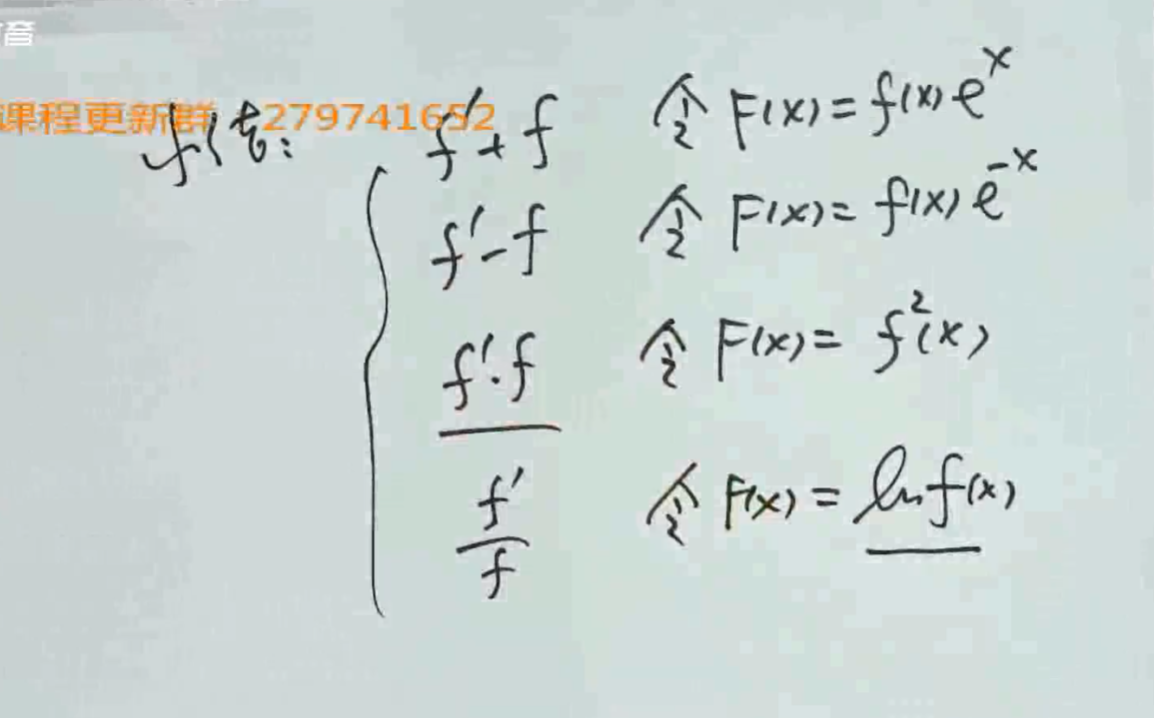 音
课程更新群 279741652
f'+f 令 F(x)=f(x)e^x
f'-f 令 F(x)=f(x)e^{-x}
f'·f 令 F(x)=f²(x)
f'/f 令 F(x)=ln f(x)